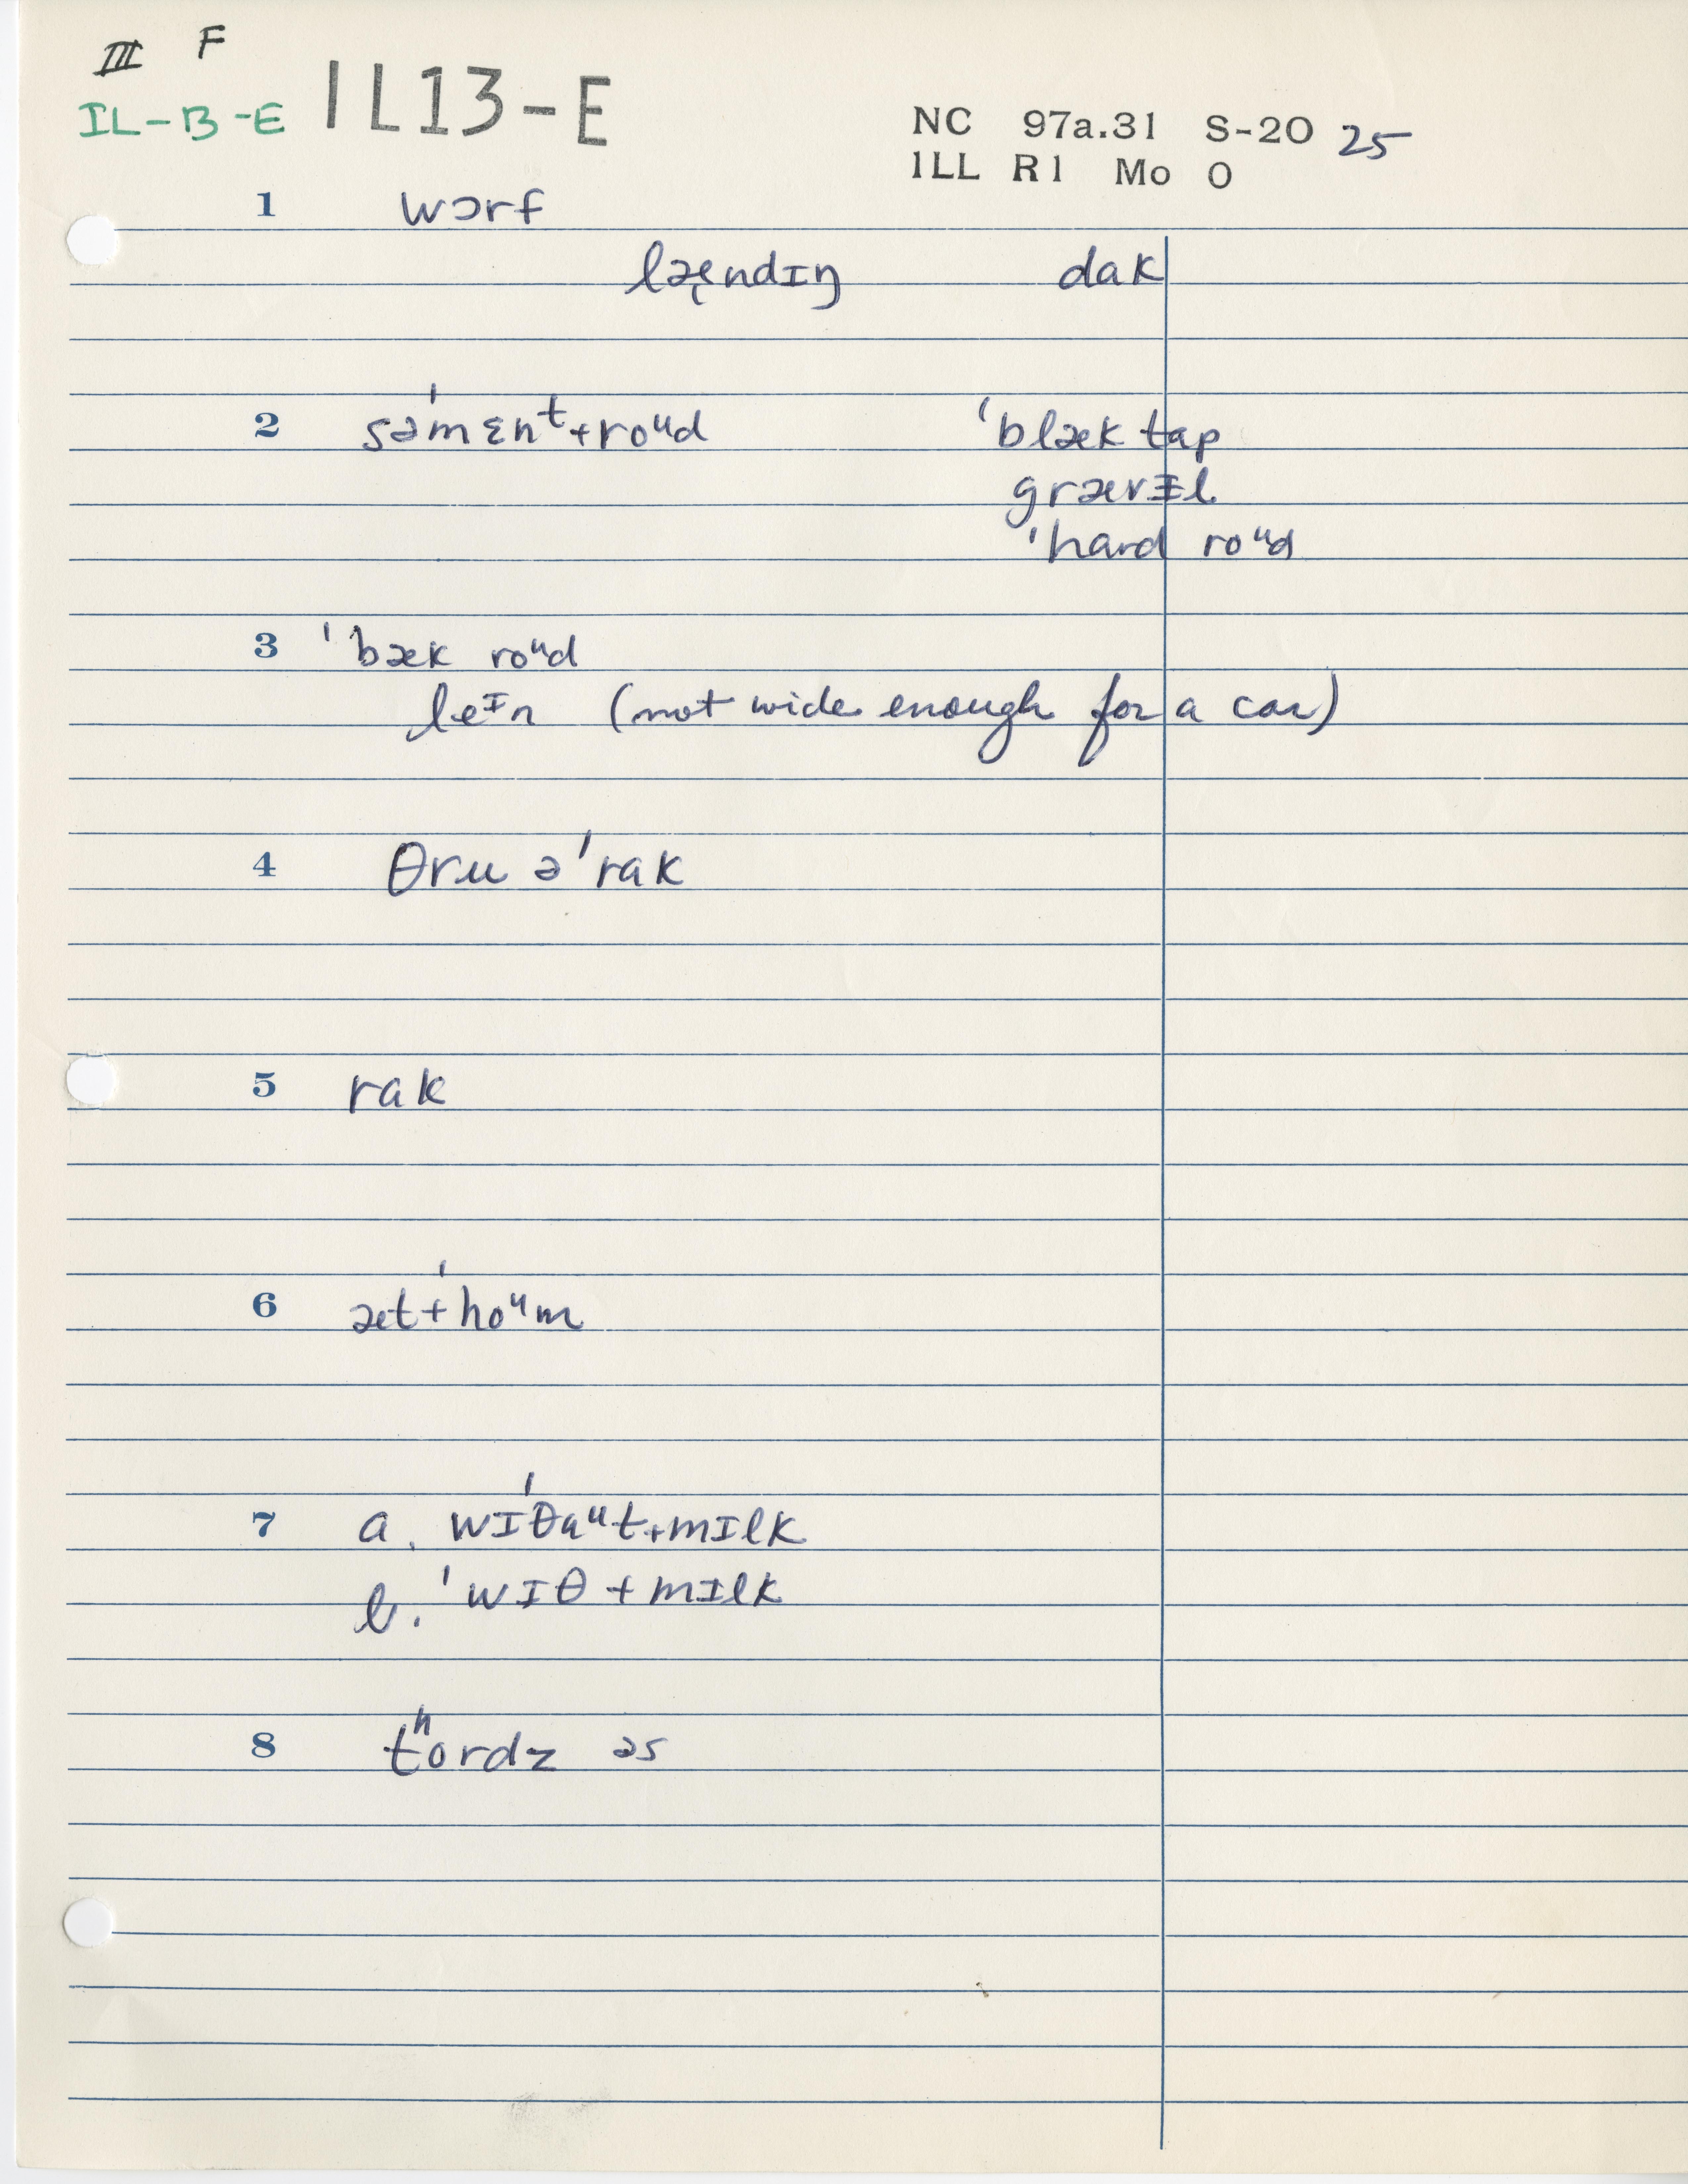 III F
IL-B-E IL13-E
NC 97a.31 S-20 25
ILL R1 Mo O
1 wɔrf
læɛ̨ndɪŋ dak
2 səˈmɛnᵗ+roᵘd ˈblæk tap
grævɨl
ˈhard roᵘd
3 ˈbæk roᵘd
leᶦn (not wide enough for a car)
4 θru əˈrak
5 rak
6 ætˈ+hoᵘm
7 a. wɪˈθaᵘt+mɪlk
b. ˈwɪθ+mɪlk
8 tʰordz əs